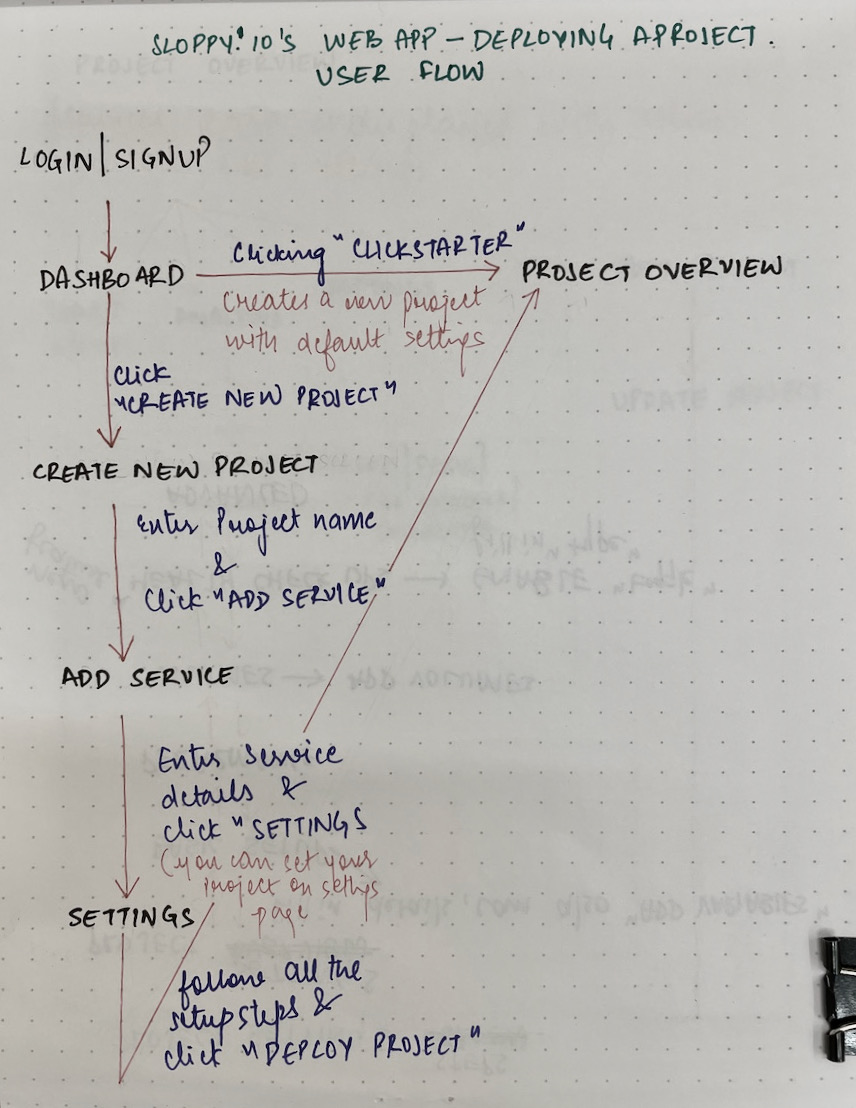 SLOPPY.IO'S WEB APP – DEPLOYING A PROJECT.
USER FLOW
LOGIN|SIGNUP
Clicking "CLICKSTARTER"
DASHBOARD
PROJECT OVERVIEW
Creates a new project
with default settings
Click
"CREATE NEW PROJECT"
CREATE NEW PROJECT
Enter Project name
&
Click "ADD SERVICE"
ADD SERVICE
Enter Service
details &
click "SETTINGS
(you can set your
project on settings
page
SETTINGS
follow all the
setup steps &
click "DEPLOY PROJECT"